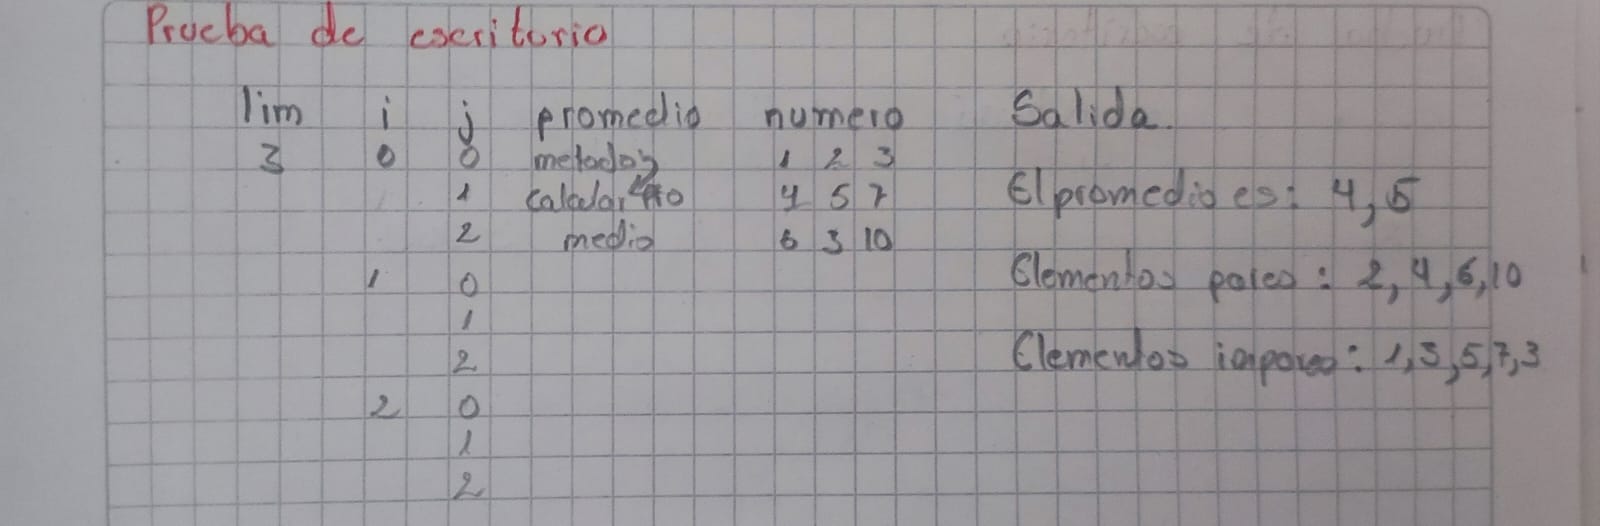 Prueba de escritorio
lim i j promedio numero Salida.
3 0 0 metodos 1 2 3
1 calcular Pro 4 5 7 El promedio es: 4,5
2 medio 6 3 10
1 0 Elementos pares: 2,4,6,10
1
2 Elementos impares: 1,3,5,7,3
2 0
1
2